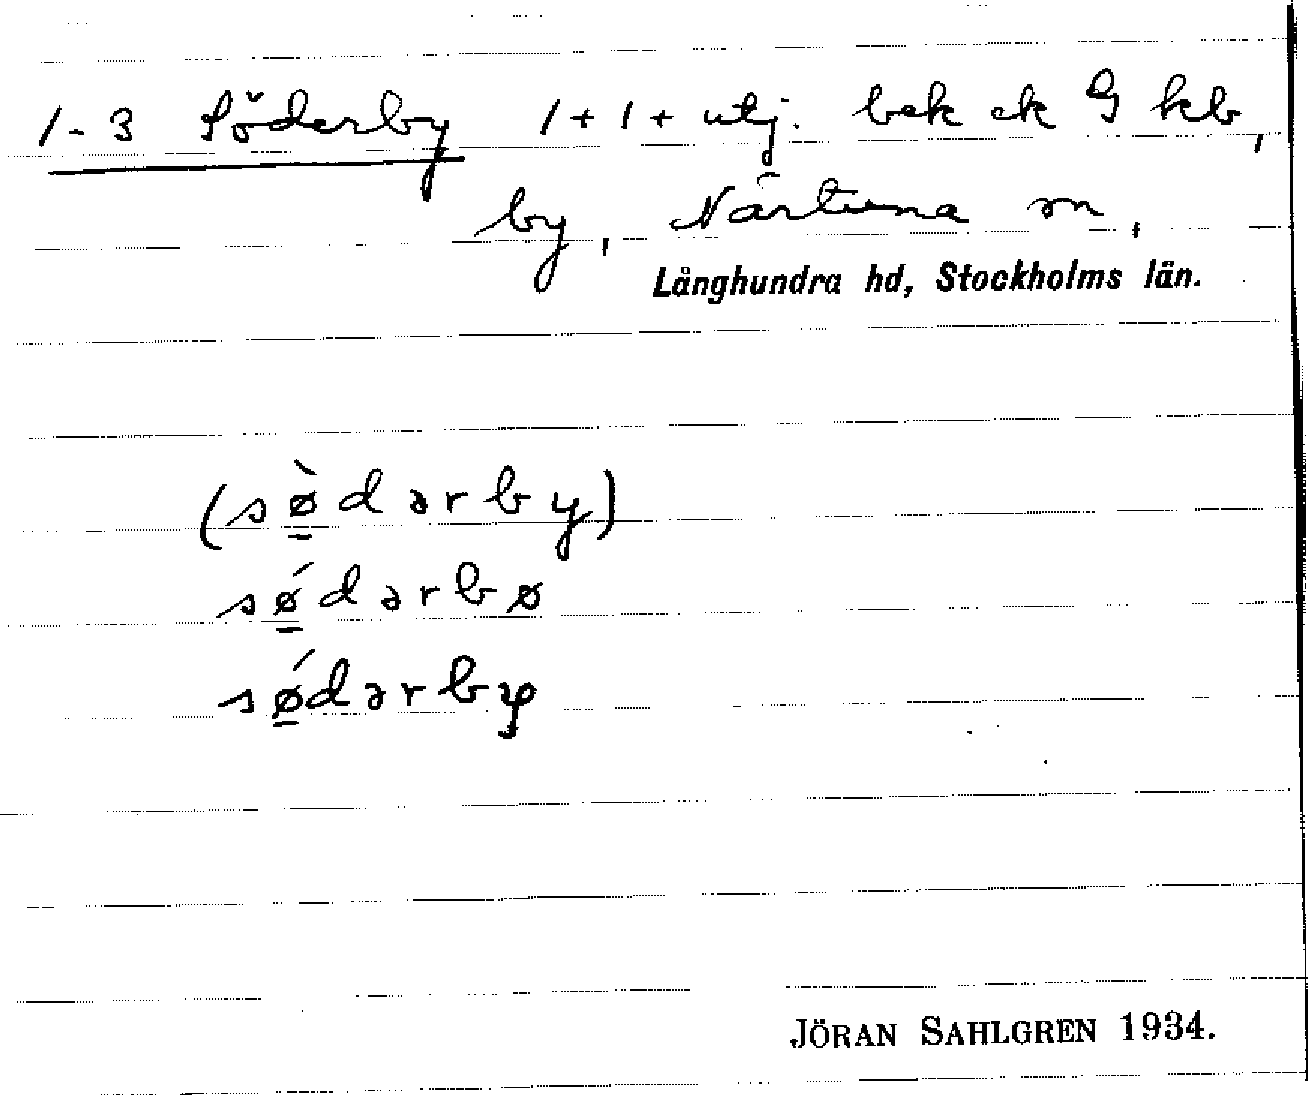 1-3 Söderby 1+1+ utj. bek ek G kb,
by, Närtuna sn,
Långhundra hd, Stockholms län.
(sø̱̀dərby)
sǿ̱dərbø
sǿ̱dərby
JÖRAN SAHLGREN 1934.